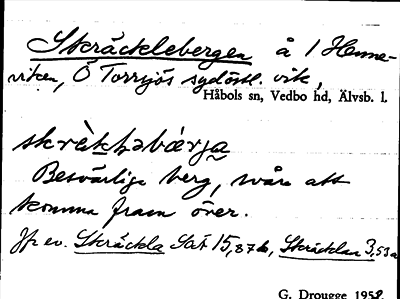 Skräcklebergen å 1 Henne-
viken, Ö Torrsjös sydöstl. vik,
Håbols sn, Vedbo hd, Älvsb. l.
Besvärliga berg, svåra att
komma fram över.
Jfr ev. Skräckla Sät 15,87 b, Skräcklan 3,53 a
G. Drougge 1958.